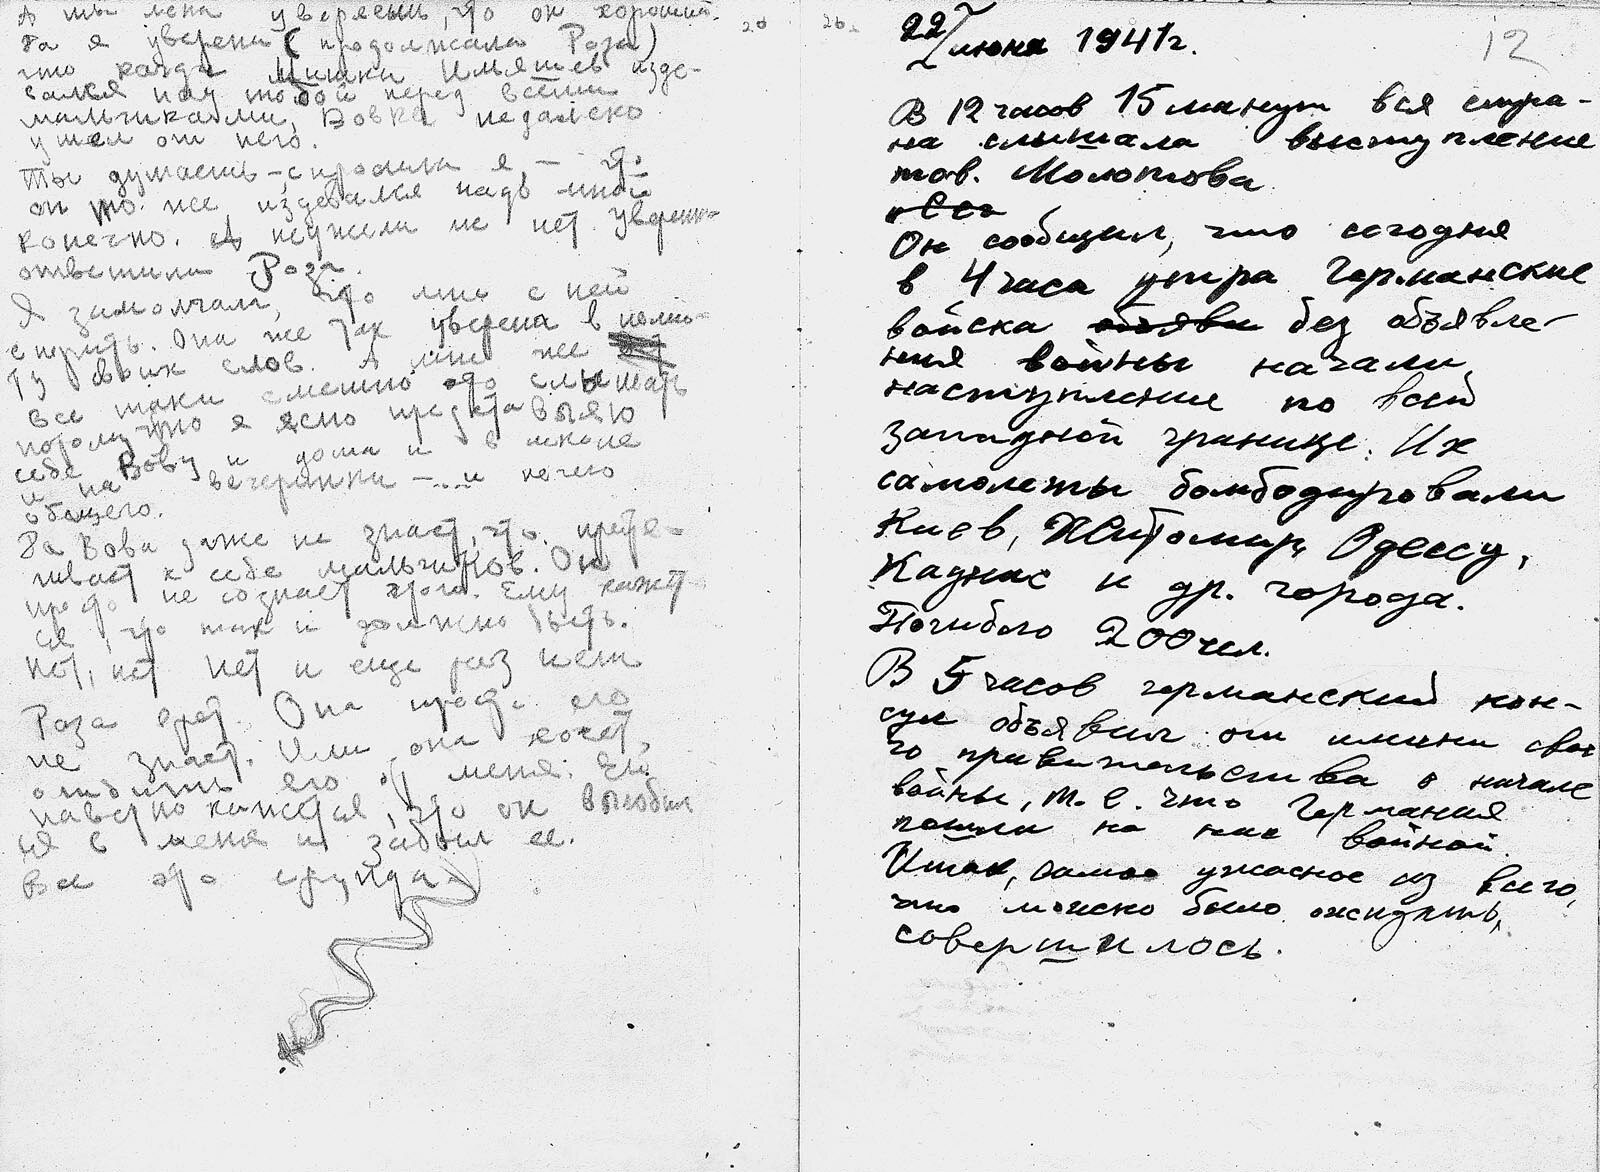 А ты меня уверяешь, что он хороший.
Да я уверена (продолжала Роза)
что когда Мишки Имяшев изде-
вался над тобой перед всеми
мальчиками, Вовка недалеко
ушел от него.
Ты думаешь – спросила я, – что
он то же издевался надо мной
конечно. А неужели же нет уверен-
ответила Роза.
Я замолчала, что мне с ней
спорить. Она же так уверена в
своих слов. А мне же
все таки смешно это слышать
потому что я ясно представляю
себе Вову и дома и в школе
и на вечеринки – .... и нечего
общего.
Да Вова даже не знает, что
к себе мальчиков. Он
просто не сознает этого. Ему кажет
ся, что так и должно быть.
Нет, нет нет и еще раз нет
Роза врет. Она просто его
не знает. Или она хочет,
отбить его от меня. Ей
наверно кажется, что он влюбил
ся в меня и забыл ее.
Все это ерунда.
20
2б.
12
22/июня 1941г.
В 12 часов 15 минут вся стра-
на слышала выступление
тов. Молотова
Он сообщил, что сегодня
в 4 часа утра Германские
войска объяви без объявле-
ния войны начали
наступление по всей
западной границе. Их
самолеты бомбодировали
Киев, Житомир, Одессу,
Каунас и др. города.
Погибло 200 чел.
В 5 часов германский кон-
сул объявил от имени свое
го правительства о начале
войны, т. е. что Германия
пошла на нас войной.
Итак, самое ужасное из всего,
что можно было ожидать,
совершилось.